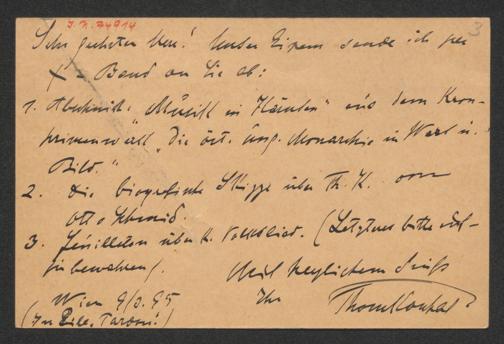 J.N. 74914
3
Sehr geehrter Herr! Unter Einem sende ich per
X Band an Sie ab:
1. Abschnitt „Musik in Kärnten" aus dem Kron-
prinzenwerk „Die öst. ung. Monarchie in Wort u.
Bild."
2. Die biografische Skizze über Th. K. von
Otto Schmid.
3. Feuilleton über K. Volkslied. (Letzteres bitte auf-
zubewahren).
Mit herzlichem Gruß
Wien 9/3. 95 Ihr
(In Eile, Pardon!) Thom Koschat